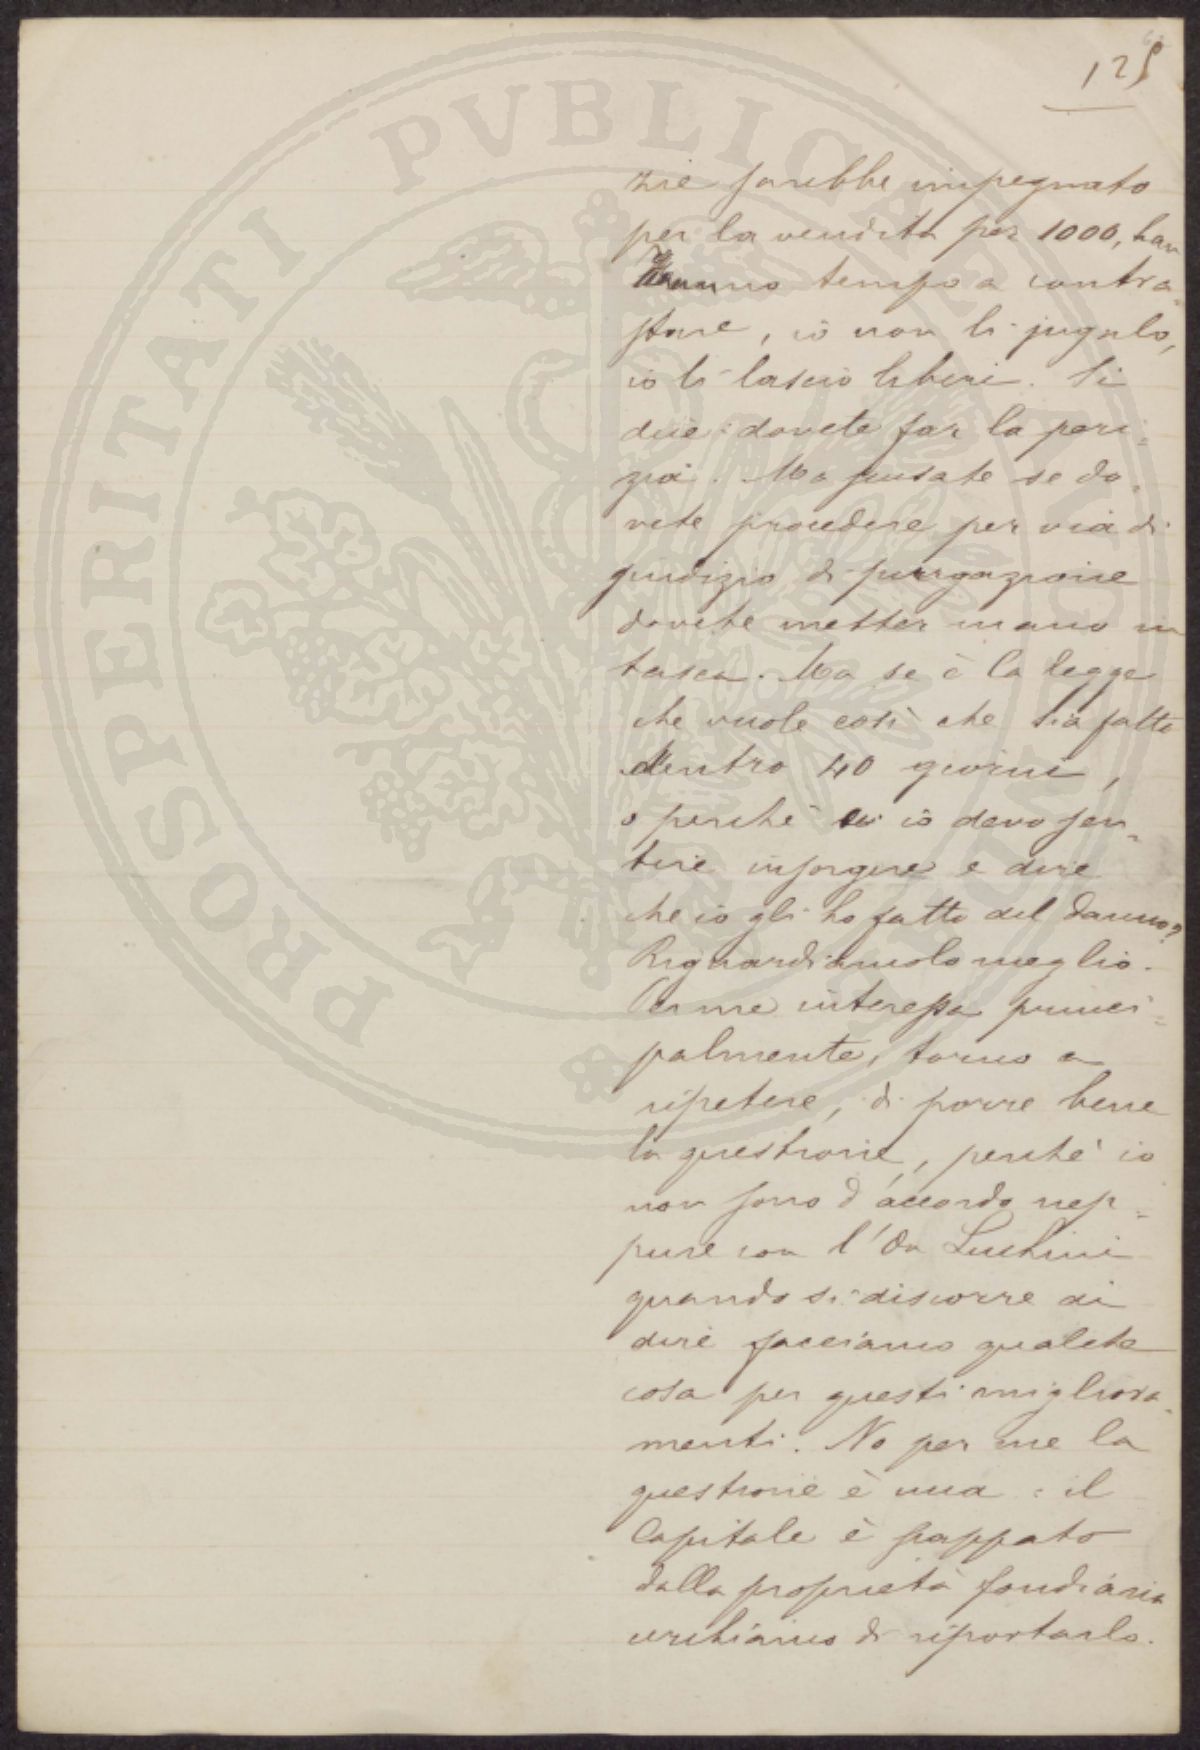 125
zie sarebbe impegnato
per la vendita per 1000, han
no tempo a contra=
stare, io non li jugulo,
io li lascio liberi. Si
dice: dovete far la peri=
zia. Ma pensate se do=
vete procedere per via di
giudizio di purgazione
dovete metter mano in
tasca. Ma se è la legge
che vuole così che sia fatto
dentro 40 giorni,
o perchè io devo sen=
tire insorgere e dire
che io gli ho fatto del danno?
Riguardiamolo meglio.
Per me interessa princi=
palmente, torno a
ripetere, di porre bene
la questione, perchè io
non sono d'accordo nep=
pure con l'On Luchini
quando si discorre di
dire facciamo qualche
cosa per questi migliora=
menti. No per me la
questione è una: il
Capitale è scappato
dalla proprietà fondiaria
cerchiamo di riportarlo.
PROSPERITATI PVBLICAE